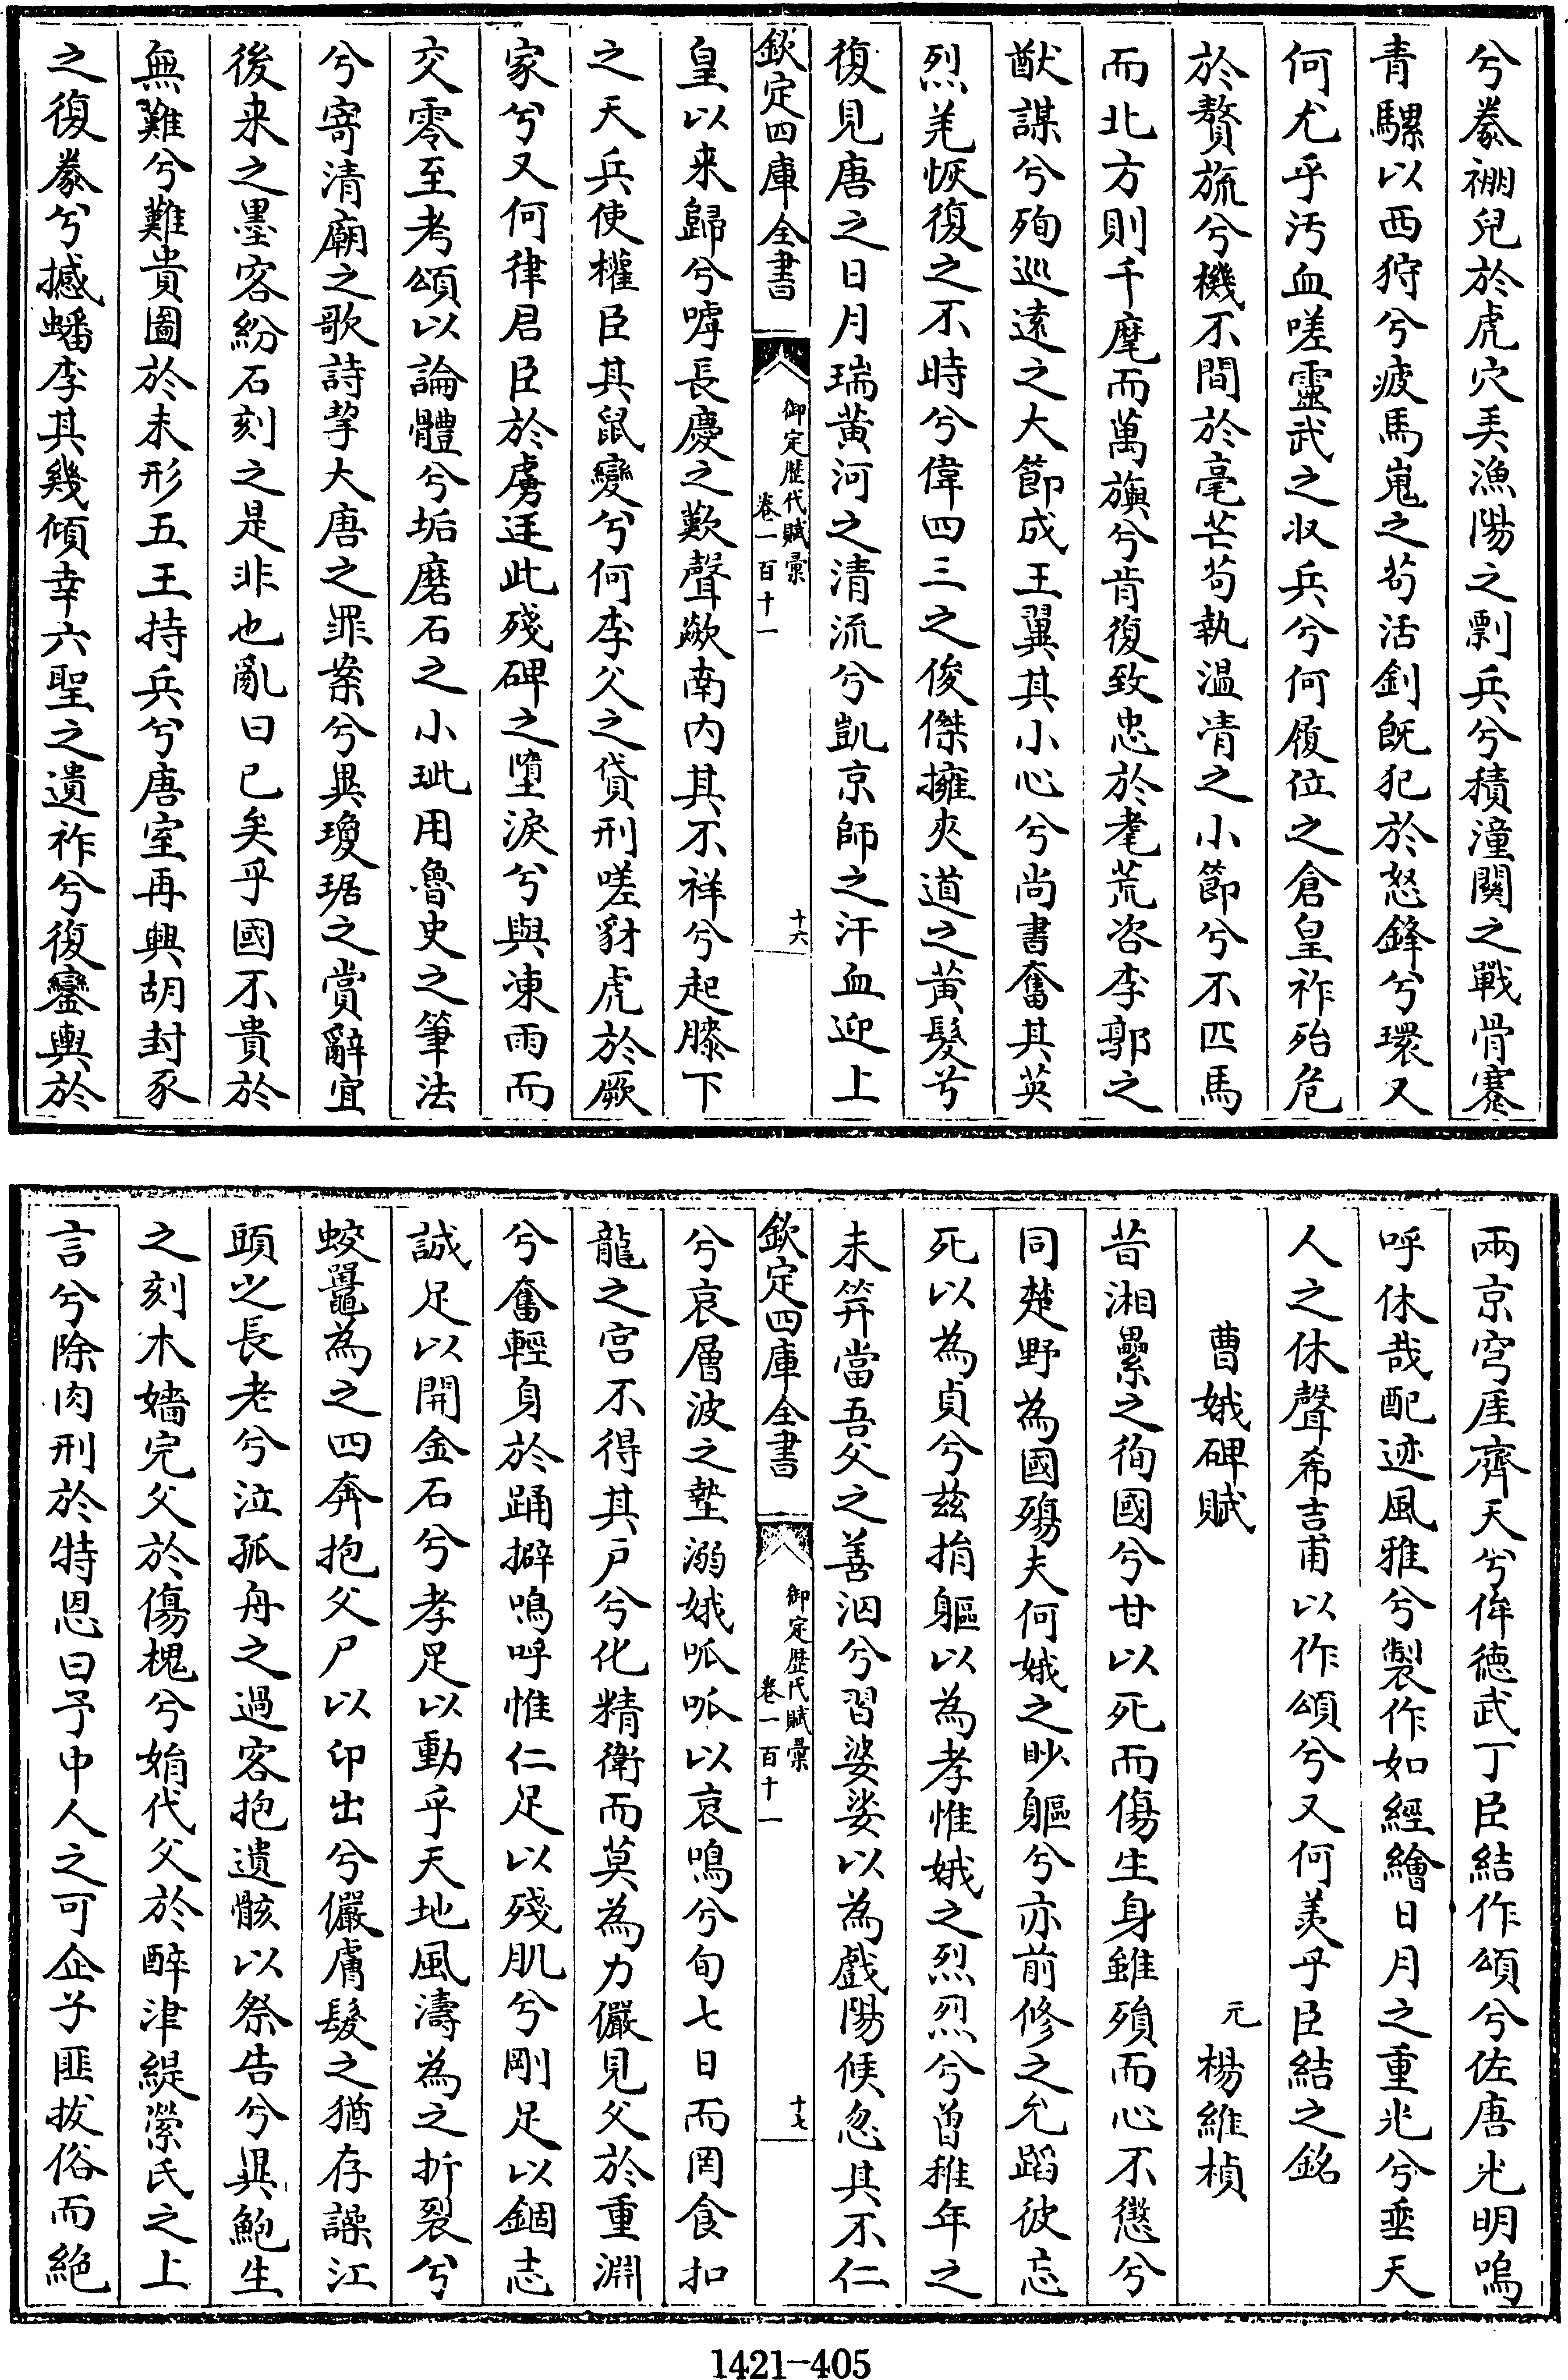 兮豢禂兒於虎穴羌漁陽之剽兵兮積潼關之戰骨蹇
青騾以西狩兮疲馬嵬之茍活釗既犯於怒鋒兮環又
何尤乎汚血嗟靈武之収兵兮何履位之倉皇祚殆危
於贅旒兮機不間於毫芒茍執温凊之小節兮不匹馬
而北方則千麾而萬旟兮肯復致忠於耄荒咨李郭之
猷謀兮殉巡逺之大節成王翼其小心兮尚書奮其英
烈羌恢復之不時兮偉四三之俊傑擁夾道之黄髮兮
復見唐之日月瑞黄河之清流兮凱京師之汗血迎上
欽定四庫全書
御定歴代賦彙
卷一百十一
十六
皇以来歸兮嘑長慶之歎聲歘南内其不祥兮起膝下
之天兵使權臣其鼠變兮何李父之貸刑嗟豺虎於厥
家兮又何律君臣於虜廷此殘碑之墮淚兮與凍雨而
交零至考頌以論體兮垢磨石之小玼用魯史之筆法
兮寄清廟之歌詩挈大唐之罪案兮異瓊琚之賞辭宜
後来之墨客紛石刻之是非也亂曰已矣乎國不貴於
無難兮難貴圖於未形五王持兵兮唐室再興胡封豕
之復豢兮撼蟠李其幾傾幸六聖之遺祚兮復鑾輿於
兩京穹厓齊天兮侔徳武丁臣結作頌兮佐唐光明嗚
呼休哉配迹風雅兮製作如經繪日月之重光兮垂天
人之休聲希吉甫以作頌兮又何羡乎臣結之銘
曹娥碑賦
元 楊維楨
昔湘纍之徇國兮甘以死而傷生身雖殞而心不懲兮
同楚野為國殤夫何娥之眇軀兮亦前修之允蹈彼忘
死以為貞兮兹捐軀以為孝惟娥之烈烈兮曽稚年之
未笄當吾父之善泅兮習婆娑以為戲陽候忽其不仁
欽定四庫全書
御定歴代賦彙
卷一百十一
十七
兮哀層波之墊溺娥呱呱以哀鳴兮旬七日而罔食扣
龍之宫不得其戸兮化精衛而莫為力儼見父於重淵
兮奮輕身於踊擗嗚呼惟仁足以殘肌兮剛足以錮志
誠足以開金石兮孝足以動乎天地風濤為之折裂兮
蛟鼉為之四奔抱父尸以卬出兮儼膚髮之猶存譟江
頭之長老兮泣孤舟之過客抱遺骸以祭告兮異鮑生
之刻木嬙完父於傷槐兮娟代父於醉津緹縈氏之上
言兮除肉刑於特恩曰予中人之可企子匪拔俗而絶
1421-405